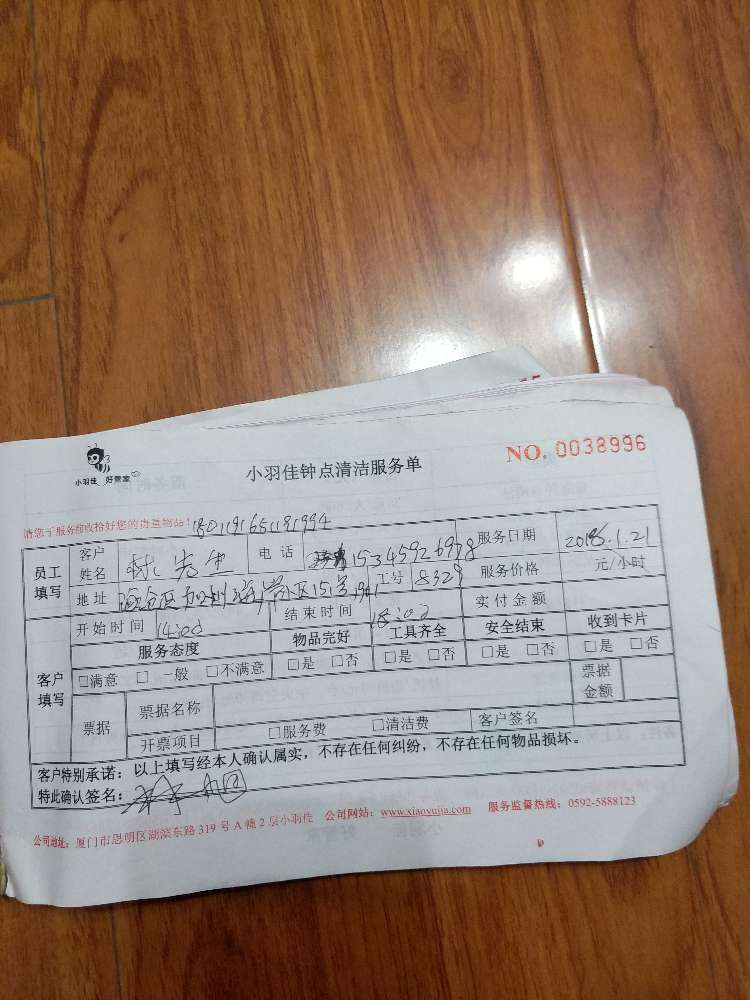 小羽佳 好管家
小羽佳钟点清洁服务单
NO. 0038996
请您于服务前收拾好您的贵重物品! 1801191651191994
员工填写 客户姓名 林先生 电话 15345926978 服务日期 2018.1.21
地址 海沧区 小区15号 工号 8329 服务价格 元/小时
开始时间 14:00 结束时间 18:00 实付金额
客户填写 服务态度 物品完好 工具齐全 安全结束 收到卡片
□满意 □一般 □不满意 □是 □否 □是 □否 □是 □否 □是 □否
票据 票据名称 票据金额
开票项目 □服务费 □清洁费 客户签名
客户特别承诺:以上填写经本人确认属实,不存在任何纠纷,不存在任何物品损坏。
特此确认签名:
公司地址:厦门市思明区湖滨东路319号A幢2层小羽佳 公司网站:www.xiaoyujia.com 服务监督热线:0592-5888123